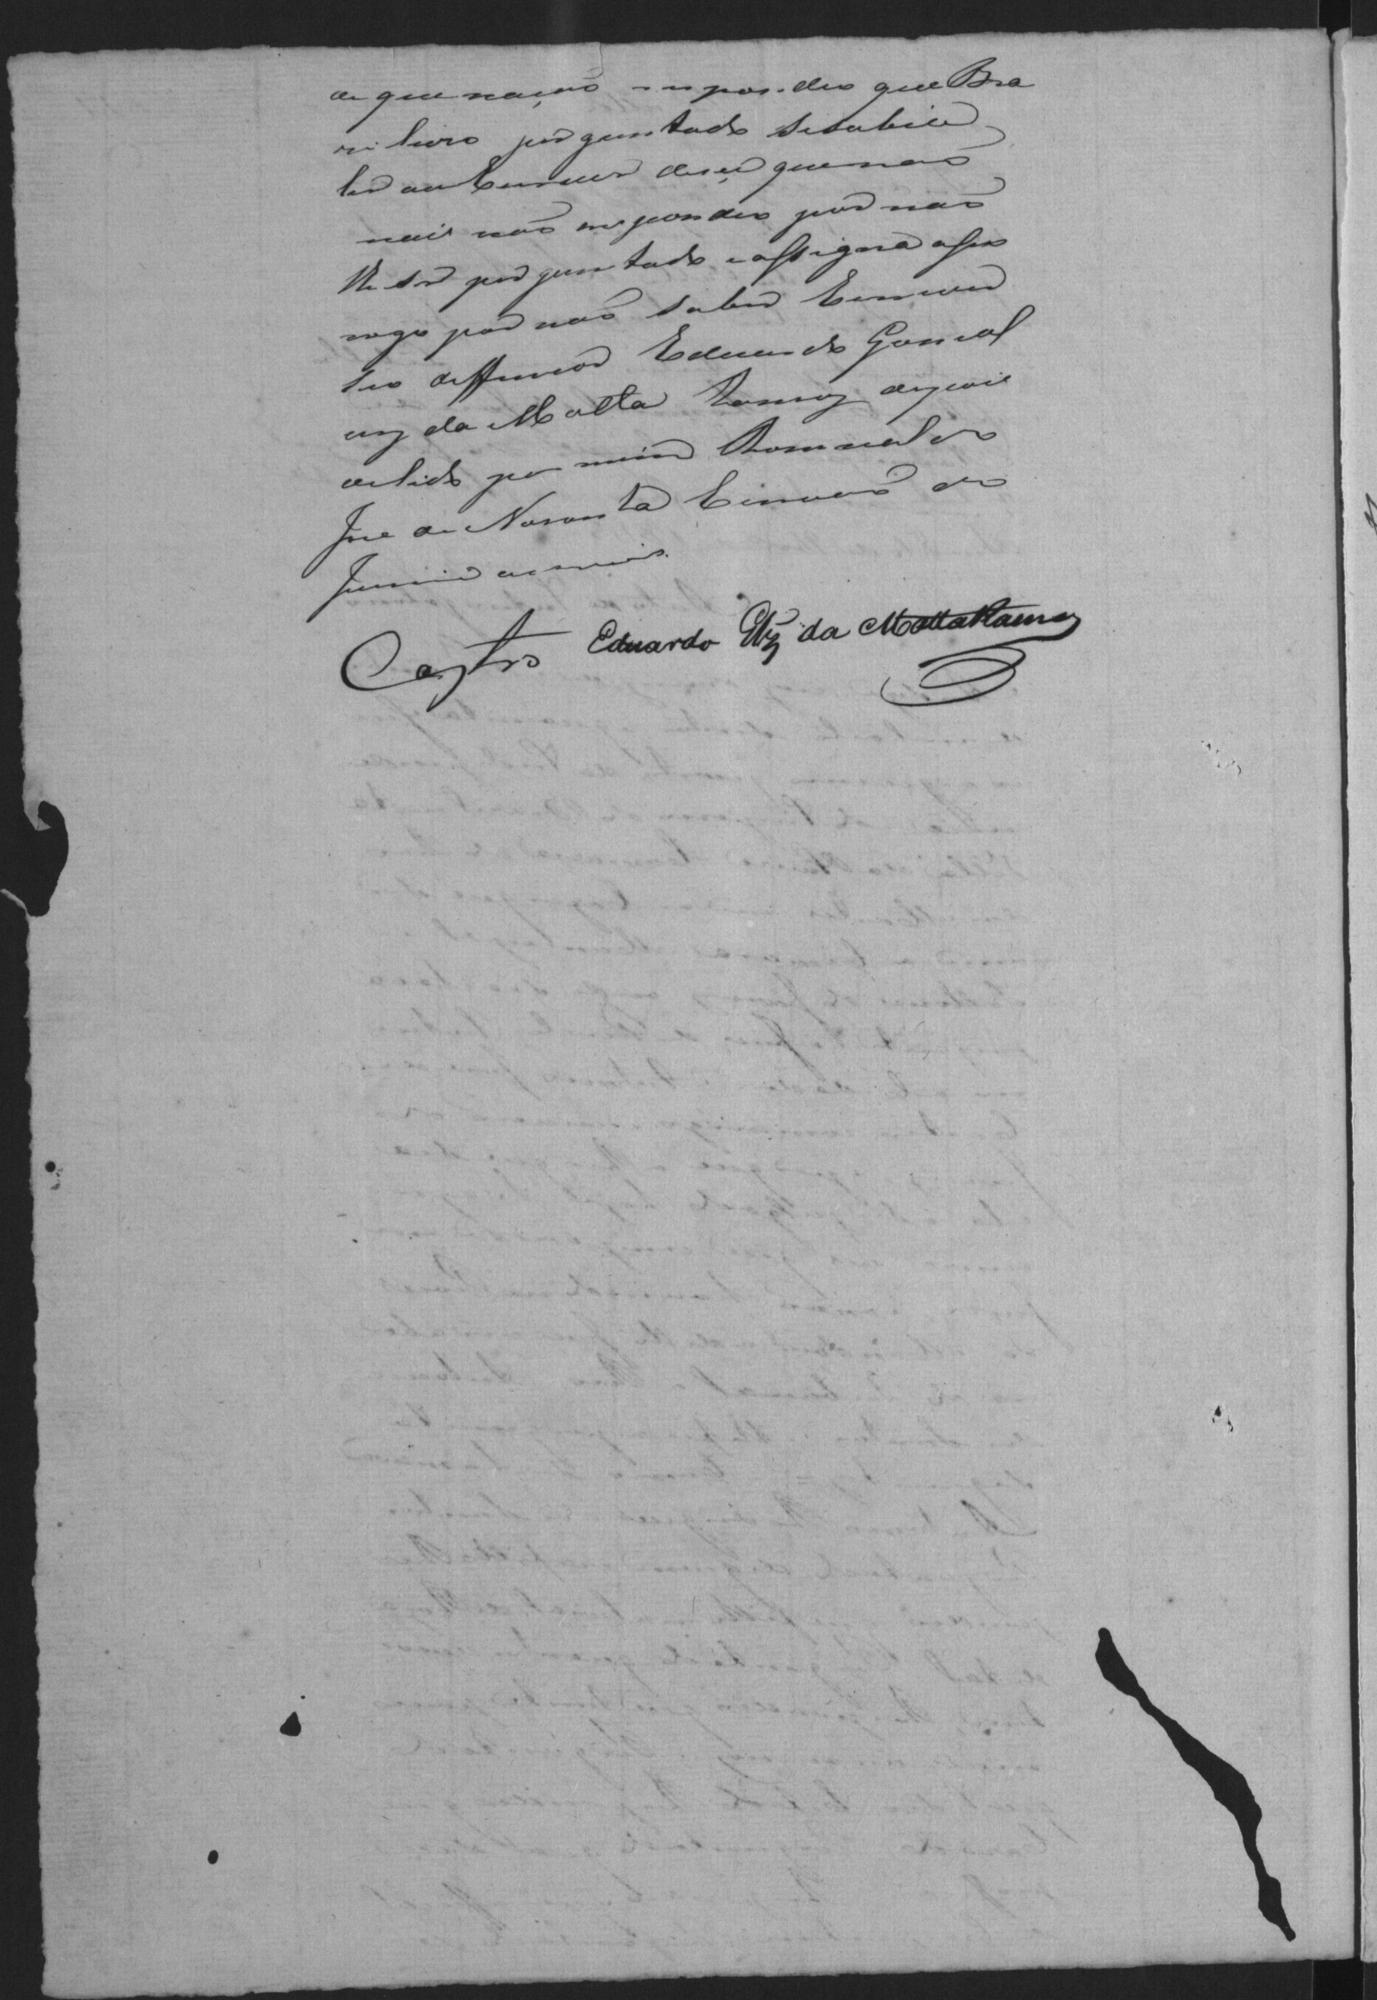 de que nação respondeo que Bra
zileiro perguntado se sabia
ler ou escrever dice que não
mais não respondeo por não
lhe ser perguntado e assigna a seo
rogo por não saber escrever
seo deffensor Eduardo Gonçal
ves da Motta Ramos depois
de lido por mim Romualdo
José de Noronha Escrivão do
Jury o escrevi.
Castro Eduardo Glz da Motta Ramos